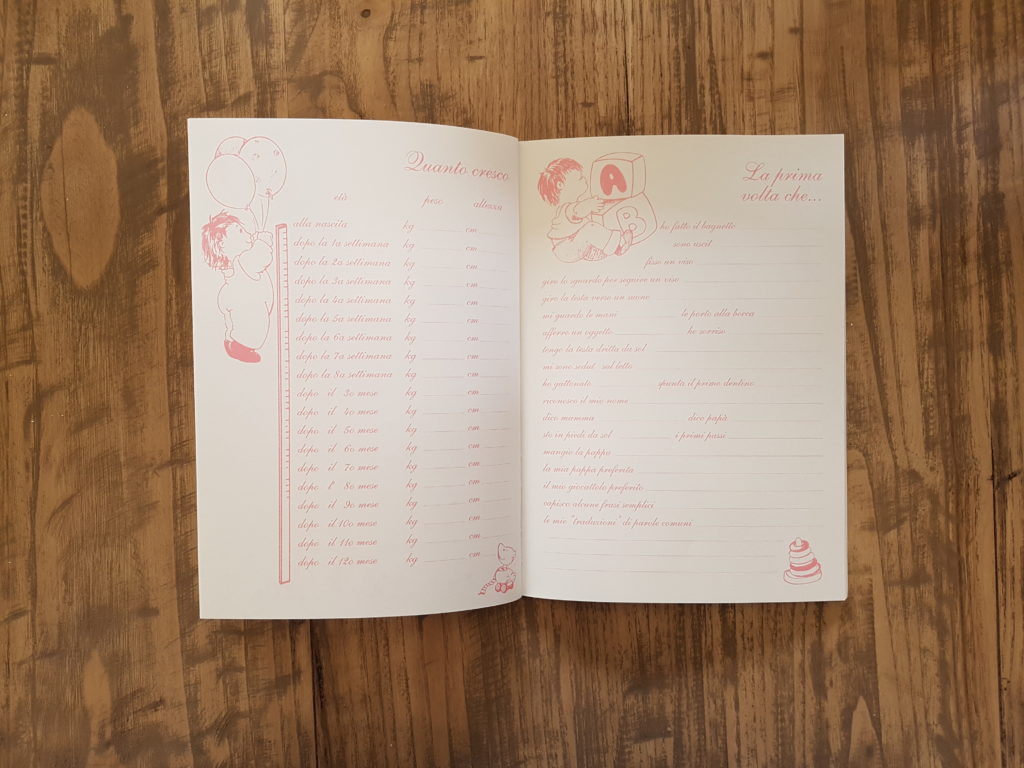 Quanto cresco
età peso altezza
alla nascita kg cm
dopo la 1a settimana kg cm
dopo la 2a settimana kg cm
dopo la 3a settimana kg cm
dopo la 4a settimana kg cm
dopo la 5a settimana kg cm
dopo la 6a settimana kg cm
dopo la 7a settimana kg cm
dopo la 8a settimana kg cm
dopo il 3o mese kg cm
dopo il 4o mese kg cm
dopo il 5o mese kg cm
dopo il 6o mese kg cm
dopo il 7o mese kg cm
dopo l' 8o mese kg cm
dopo il 9o mese kg cm
dopo il 10o mese kg cm
dopo il 11o mese kg cm
dopo il 12o mese kg cm
La prima
volta che...
A
B
ho fatto il bagnetto
sono uscit
fisso un viso
giro lo sguardo per seguire un viso
giro la testa verso un suono
mi guardo le mani le porto alla bocca
afferro un oggetto ho sorriso
tengo la testa dritta da sol
mi sono sedut sul letto
ho gattonato spunta il primo dentino
riconosco il mio nome
dico mamma dico papà
sto in piedi da sol i primi passi
mangio la pappa
la mia pappa preferita
il mio giocattolo preferito
capisco alcune frasi semplici
le mie "traduzioni" di parole comuni